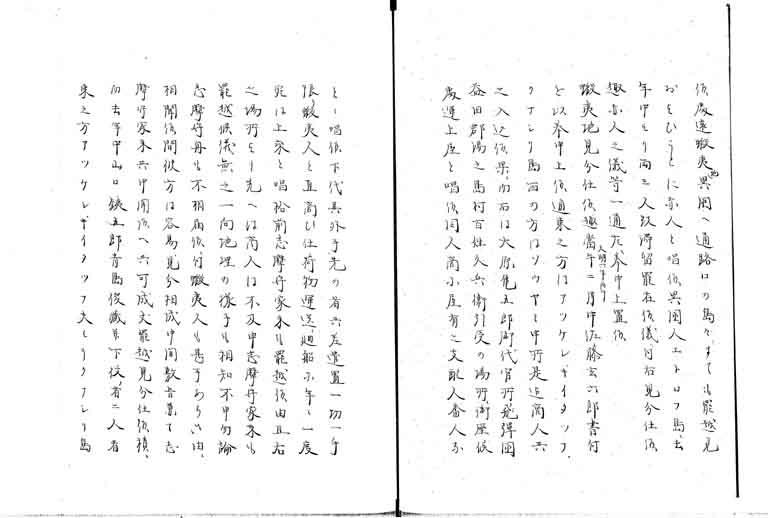 仕処遠蝦夷異国へ通路口の島々、すても罷越見
おそひうとに赤人と唱候異国人エトロフ島、去
年中より両三人致滞留罷在候儀、付右見分仕候
趣赤人之儀等一通左、奉申上置候
蝦夷地見分仕候趣当午二月中佐藤玄六郎書付
を以奉申上候通東之方はアツケシキイタツフ、
クナシリ島西の方はソウヤと申所是迄商人共
之入込候果、而右は大原亀五郎御代官所飛騨国
益田郡湯之島村百姓久兵衛引受の場所御座候
処運上屋と唱候同人商小屋有之支配人番人等
と唱候下代其外手先の者共差遣置一切一手
張、蝦夷人と直商ひ仕荷物運送、廻船に年々一度
宛は上乗と唱松前志摩守家来も罷越候由且右
之場所より先へは商人は不及申志摩守家来も
罷越候儀無之一向地理の様子も相知不申勿論
志摩守再も不相届候付、蝦夷人も甚手あらに由、
相聞候間彼方は容易見分相成申間敷旨兼て志
摩守家来共申聞候へ共可成丈罷越見分仕候積、
而去年中山口鉄五郎青島俊蔵并下役者二人者
東之方アツケシキイタツフ夫よりクナシリ島